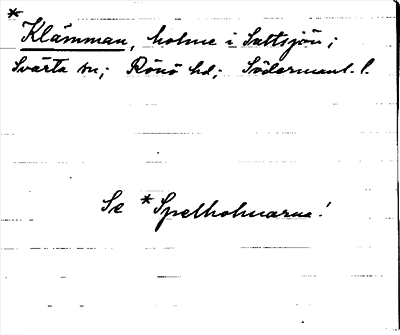 *
Klämman, holme i Saltsjön;
Svärta sn; Rönö hd; Södermanl. l.
Se *Spelholmarna!